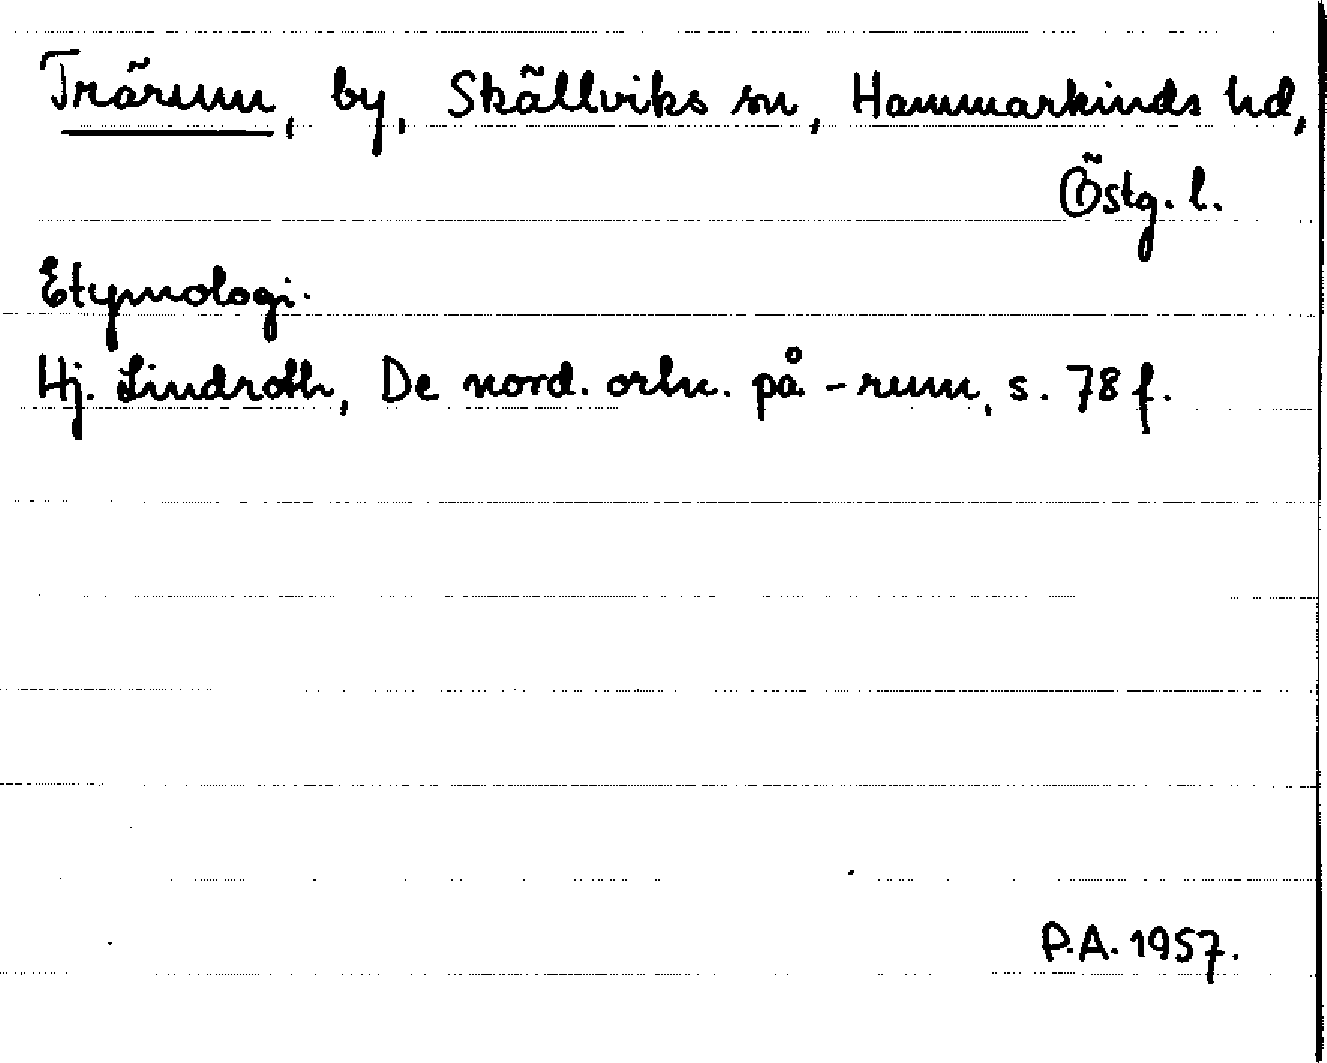 Trärum, by, Skällviks sn, Hammarkinds hd,
Östg. l.
Etymologi.
Hj. Lindroth, De nord. ortn. på -rum, s. 78 f.
P.A. 1957.